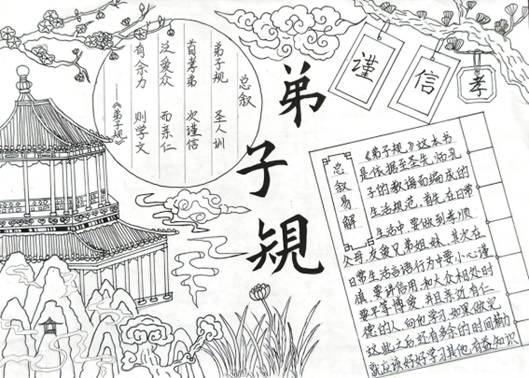 总叙
弟子规 圣人训
首孝弟 次谨信
泛爱众 而亲仁
有余力 则学文
——《弟子规》
弟子规
谨
信
孝
总叙易解
《弟子规》这本书
是依据至圣先师孔
子的教诲而编成的
生活规范。首先,在日常
生活中要做到孝顺
父母,友爱兄弟姐妹。其次在
日常生活言语行为中要小心谨
慎,要讲信用,和大众相处时
要平等博爱,并且亲近有仁
德的人,向他学习,如果做完
这些之后,还有多余的时间精力
就应该好好学习其他有益知识